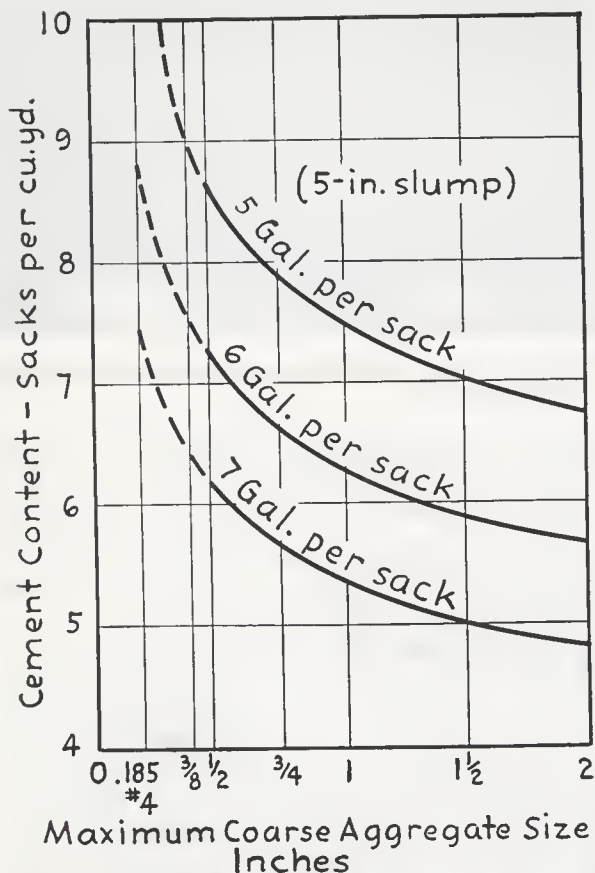 10
9
8
7
6
5
4
Cement Content – Sacks per cu.yd.
(5-in. slump)
5 Gal. per sack
6 Gal. per sack
7 Gal. per sack
0 .185 3/8 1/2 3/4 1 1 1/2 2
#4
Maximum Coarse Aggregate Size
Inches